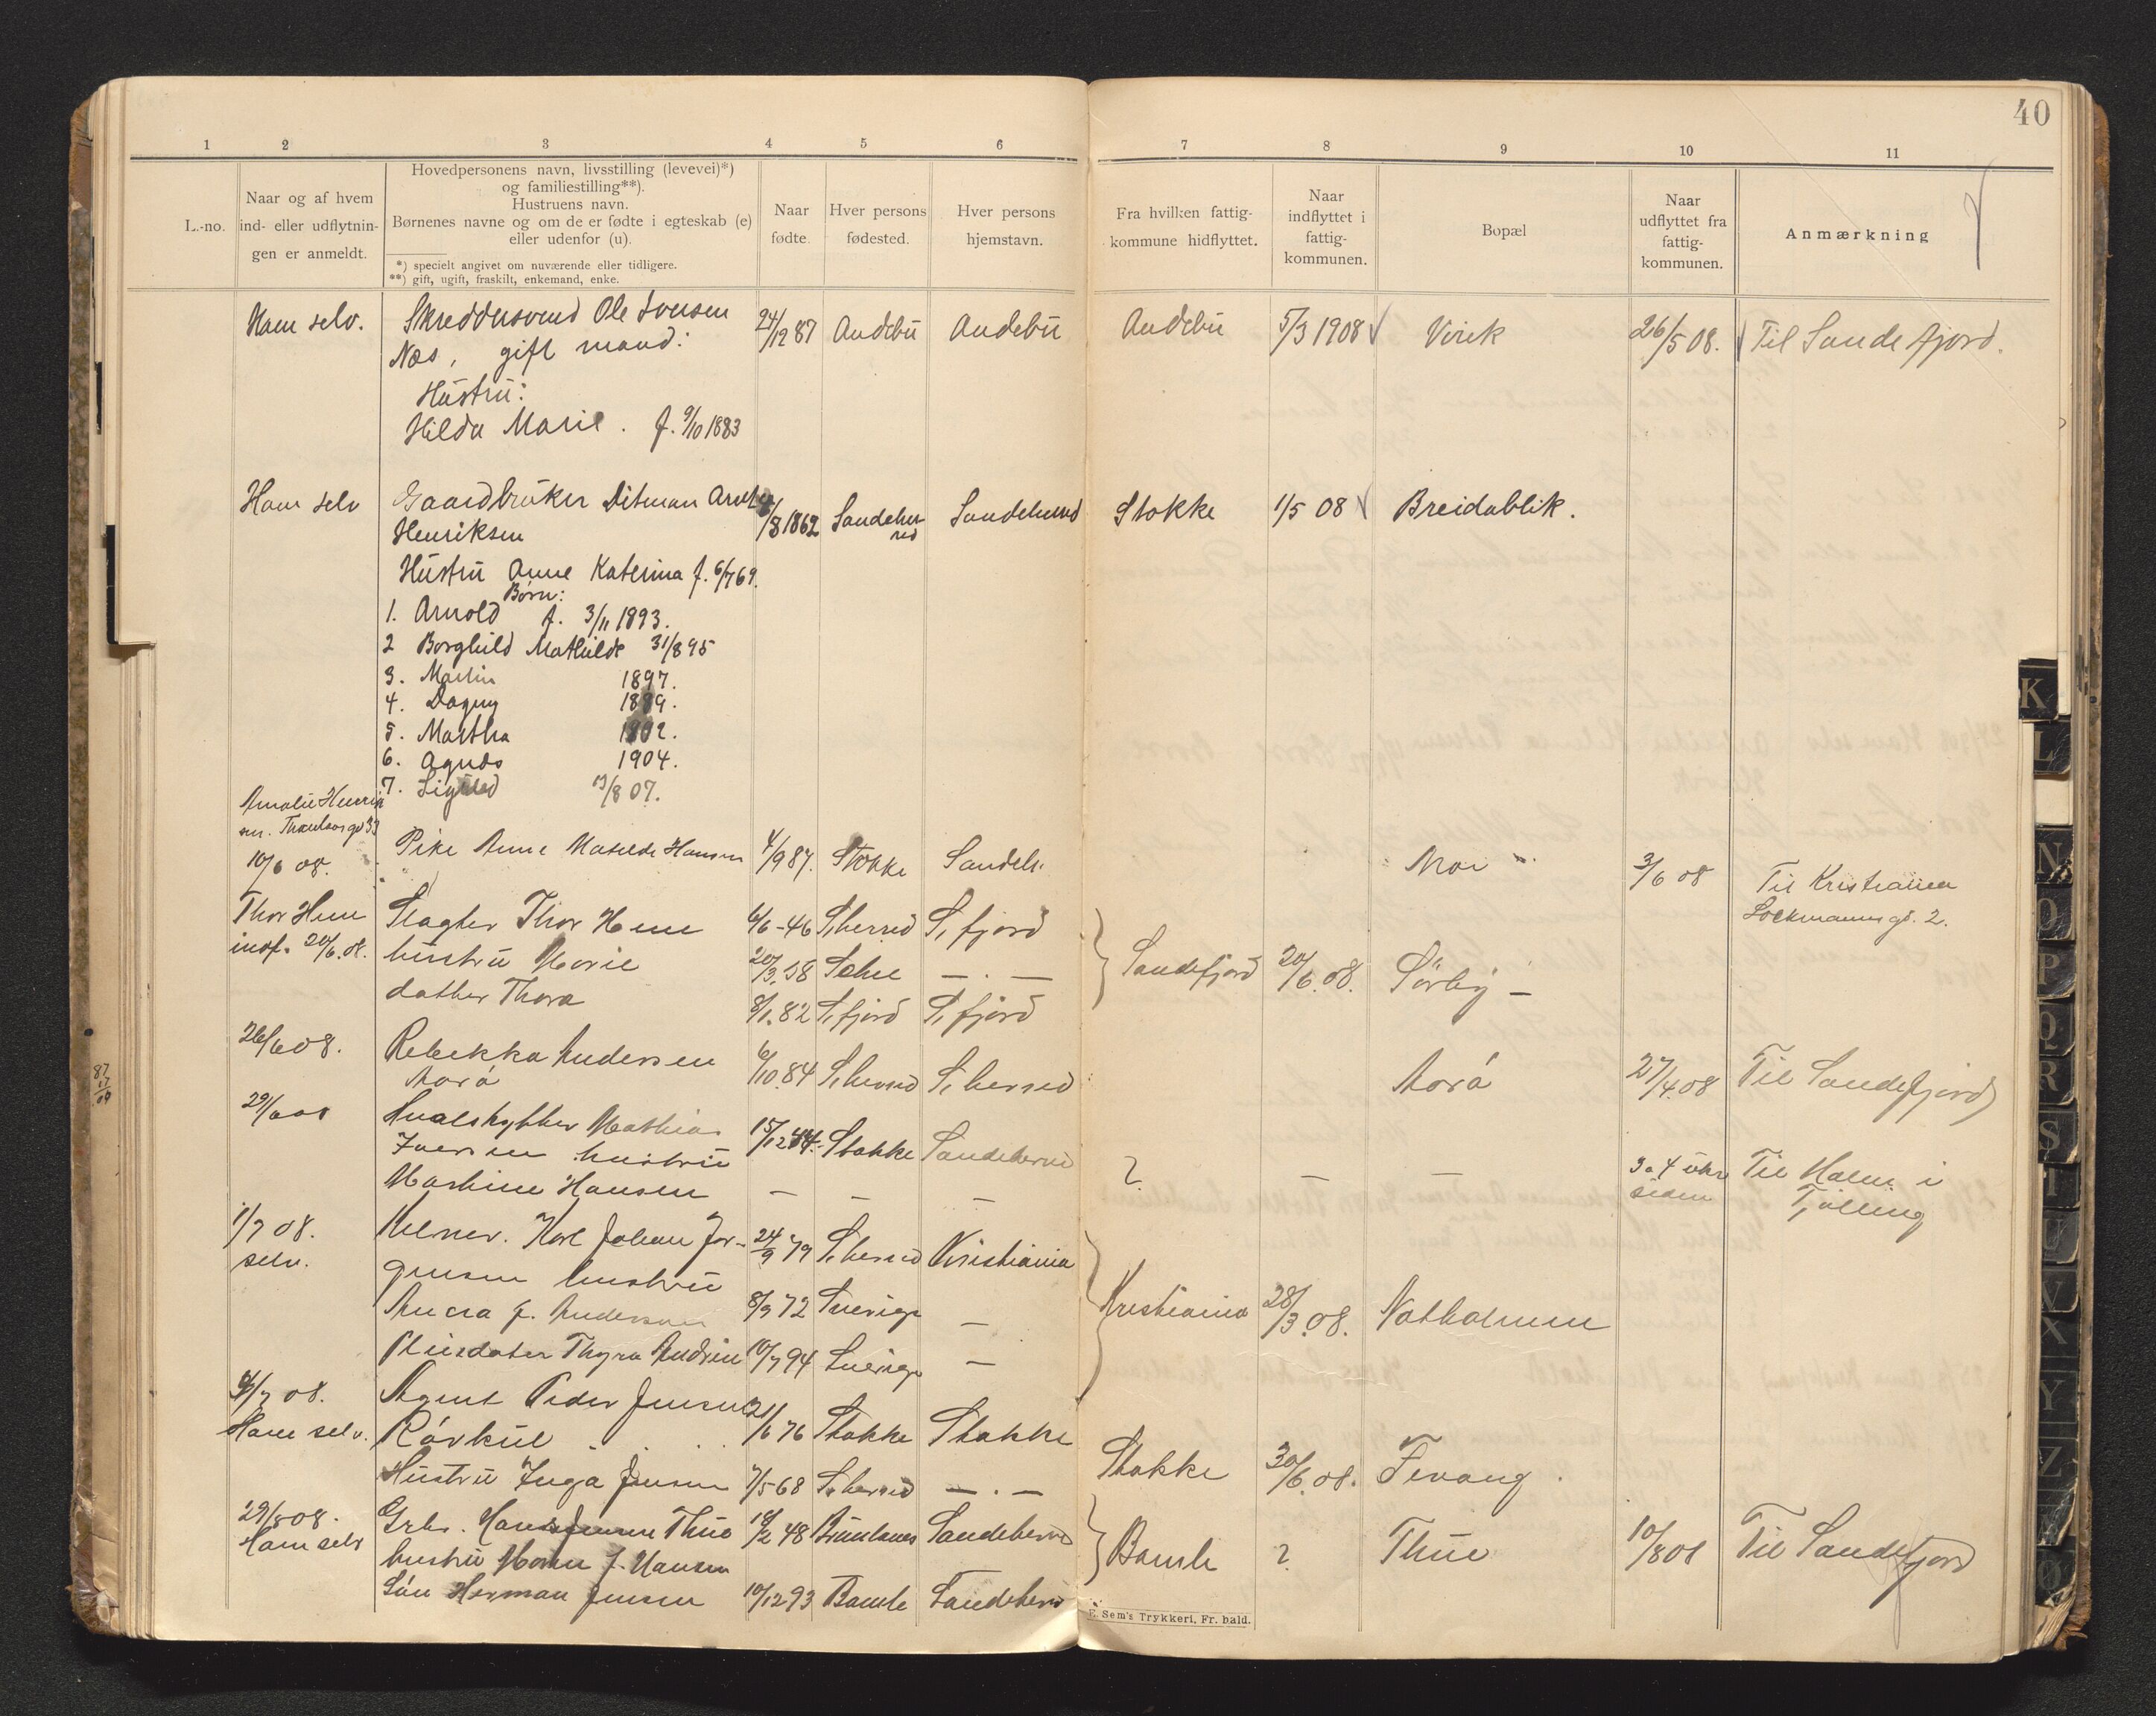 40
1 2 3 4 5 6 7 8 9 10 11
L.-no.
Naar og af hvem
ind- eller udflytnin-
gen er anmeldt.
Hovedpersonens navn, livsstilling (levevei)*)
og familiestilling**).
Hustruens navn.
Børnenes navne og om de er fødte i egteskab (e)
eller udenfor (u).
*) specielt angivet om nuværende eller tidligere.
**) gift, ugift, fraskilt, enkemand, enke.
Naar
fødte.
Hver persons
fødested.
Hver persons
hjemstavn.
Fra hvilken fattig-
kommune hidflyttet.
Naar
indflyttet i
fattig-
kommunen.
Bopæl
Naar
udflyttet fra
fattig-
kommunen.
Anmærkning
Ham selv. Skreddersvend Ole Iversen 24/12 87 Andebu Andebu Andebu 5/3 1908 Virik 26/5 08. Til Sandefjord.
Næs, gift mand:
Hustru:
Hilda Marie. f. 9/10 1883
Ham selv Gaardbruker Ditman /8 1862 Sandeher- Sandeherred Stokke 1/5 08 Breidablik.
red
Henriksen
Hustru Anne Katerina f. 6/7 69.
Børn:
1. Arnold f. 3/11 1893.
2 Borghild Mathilde 31/8 95
3. Martin 1897.
4. Dagny 1899.
5. Martha 1902.
6. Agnes 1904.
7. Sigurd 13/8 07.
Amalie
10/6 08. Pike Anne Matilde Hansen 4/9 87. Stokke Sandeh. Moi 3/6 08 Til Kristiania
Lockmanns gd. 2.
Thor Hem Slagter Thor Hem 6/6 - 46 S,herred S,fjord
indf. 20/6.08. hustru Marie 20/3.58 — . — Sandefjord 20/6.08. Sørby —
datter Thora 8/1.82 S,fjord S,fjord
26/6 08. Rebekka Andersen 6/10.84 S,herred S,herred Morø 27/4.08 Til Sandefjord
Morø
29/6 08 Hvalskytter Mathias 15/12 44. Stokke Sandeherred
Iversen hustru ? — — 3 a 4 uker Til Halm i
siden Tjølling
Mathine Hansen — — —
1/7 08. Kelner. Karl Johan Jør- 24/9 79 S,herred Kristiania
selv. gensen hustru
Anna J. Andersen 8/9 72 Sverige — Kristiania 28/3.08. Natholmen
Pleiedatter Thyra Andrine 10/7 94 Sverige —
4/7 08. Agent Peder Jensen 21/6 76 Stokke Stokke
Ham selv. Råvkül
Hustru Inga Jensen 7/5 68 S,herred — . — Stokke 30/6.08. Fevang.
29/8 08. Grbr. Hans Jensen Thue 18/2 48 Brunlanes Sandeherred Bamle ? Thue 10/8 08 Til Sandefjord
Ham selv hustru Maren J. Hansen
Søn Herman Jensen 10/12 93 Bamle Sandeherred
E. Sem's Trykkeri, Fr. hald.
K
L
N
O
P
Q
R
S
T
U
V
X
Y
Z
Æ
Ø